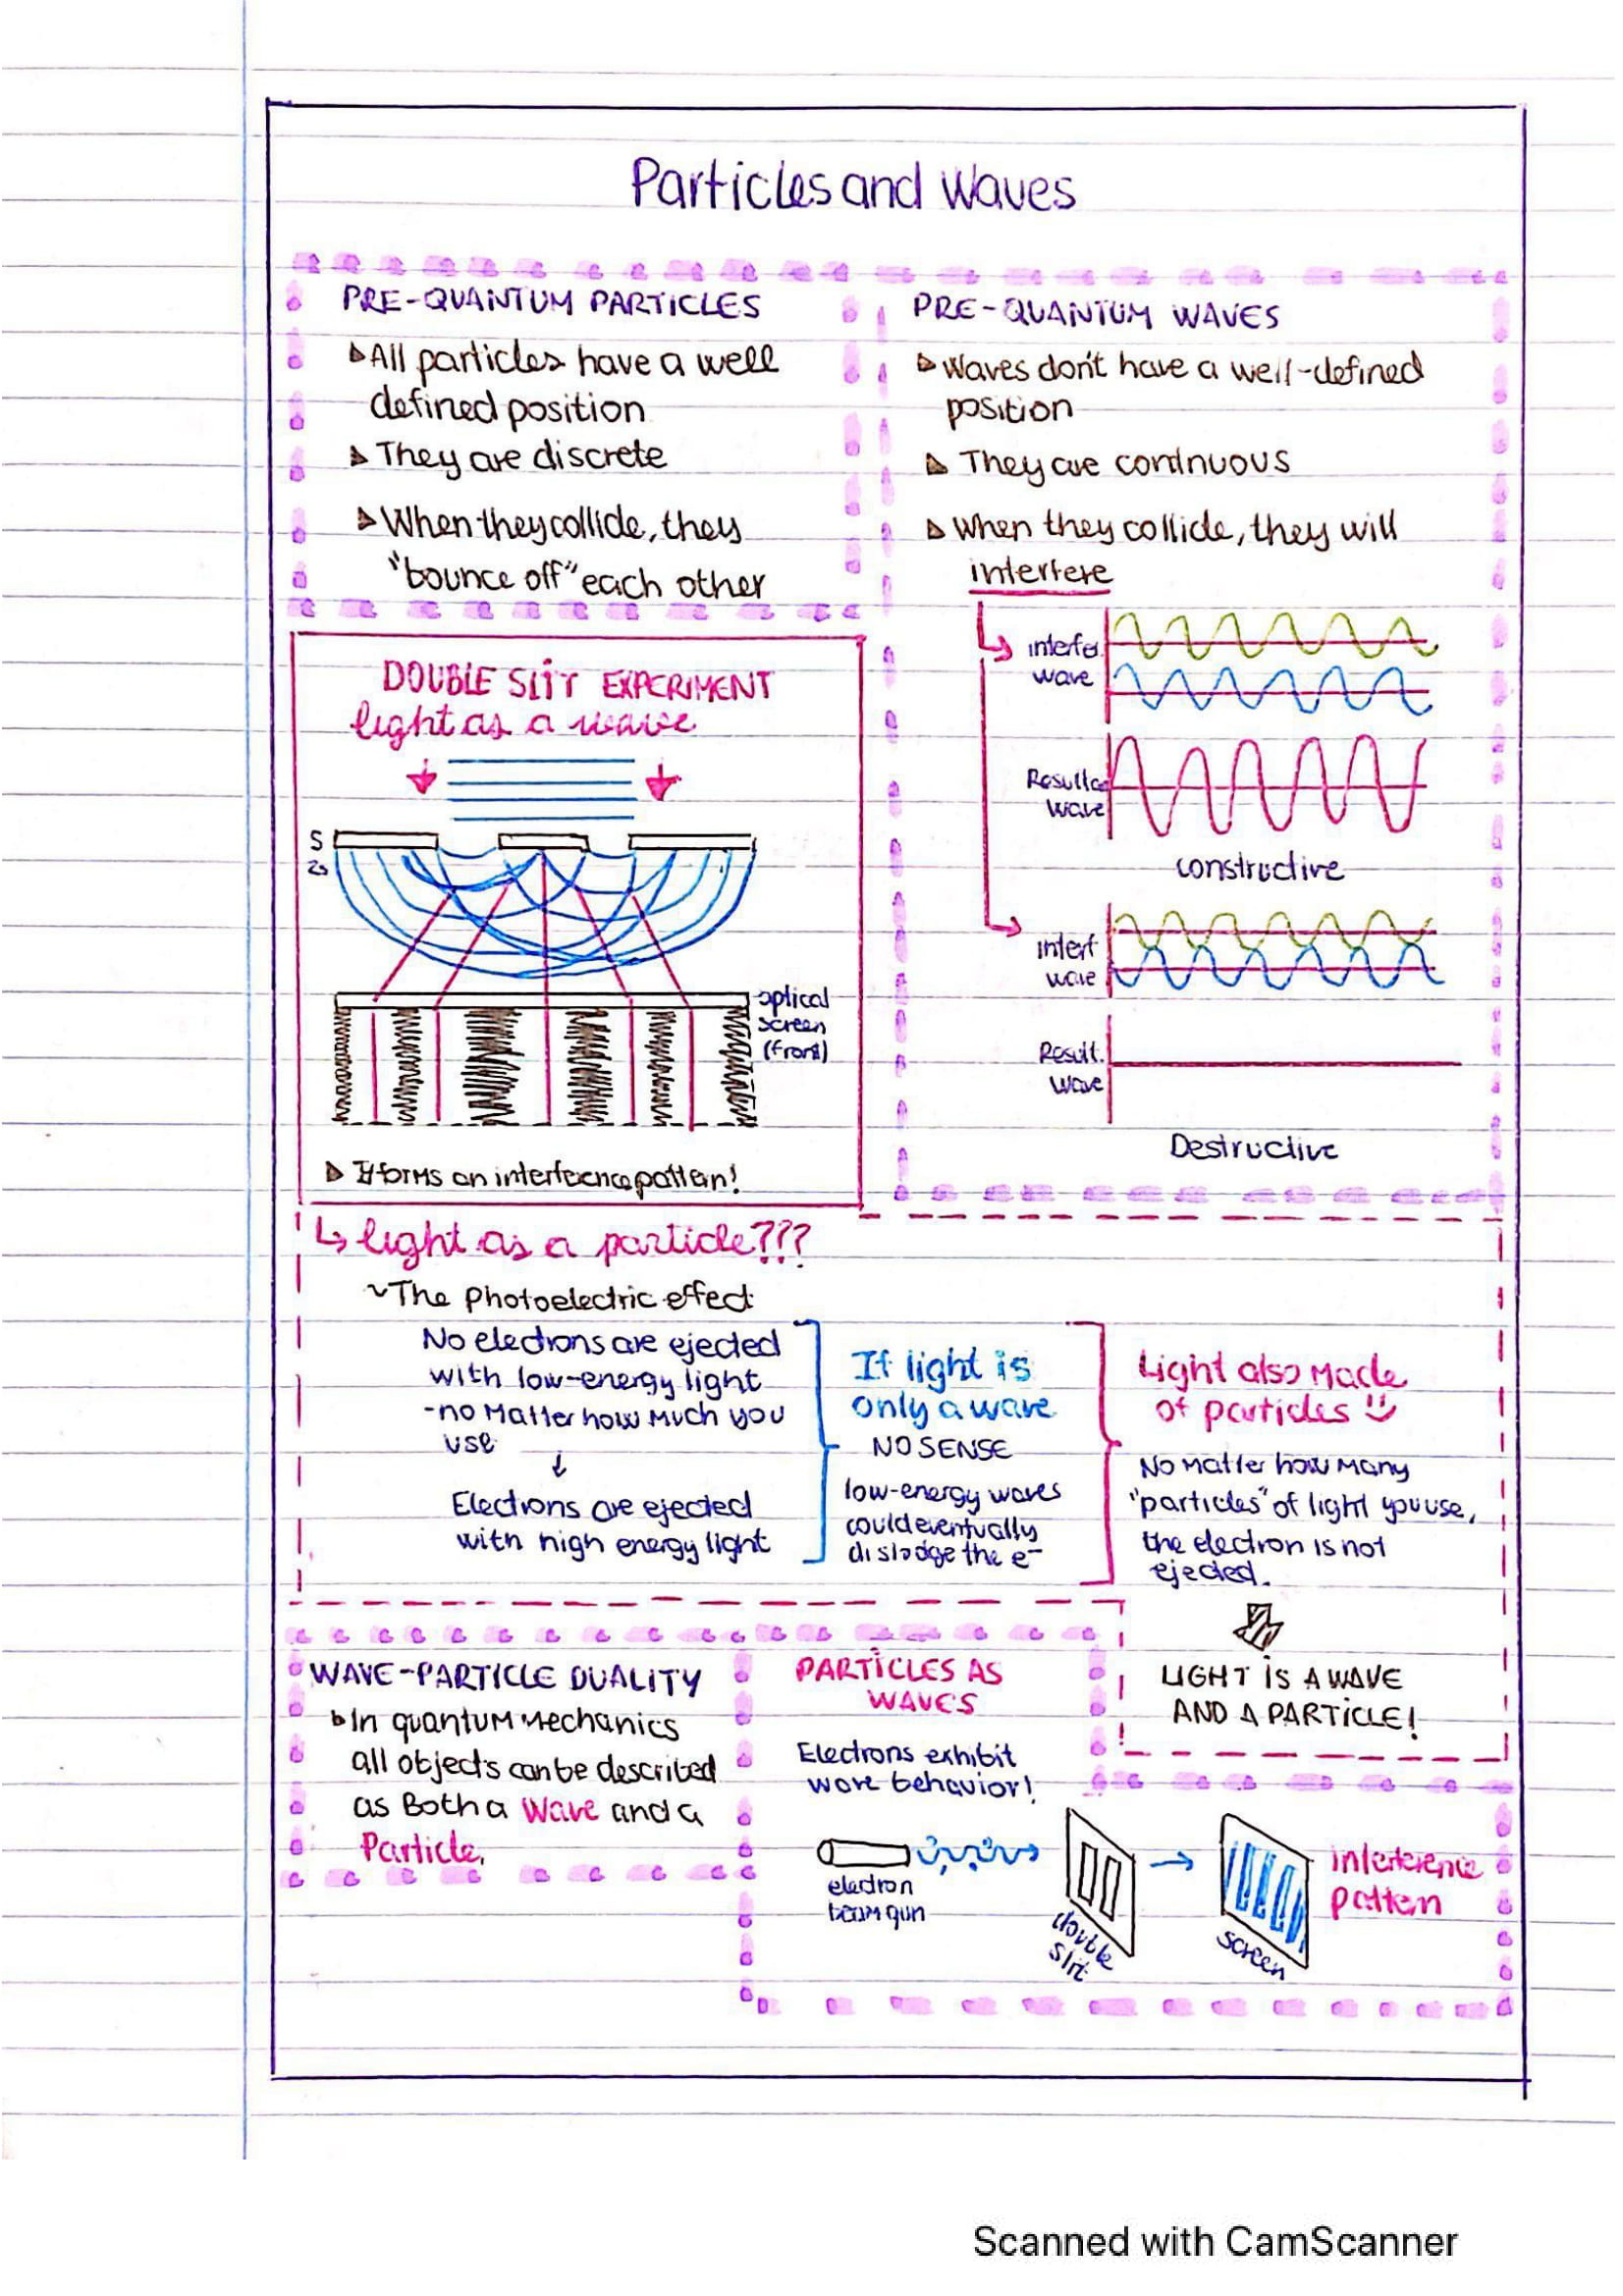 Particles and Waves
PRE-QUANTUM PARTICLES
All particles have a well
defined position
They are discrete
When they collide, they
"bounce off" each other
PRE-QUANTUM WAVES
Waves don't have a well-defined
position
They are continuous
When they collide, they will
interfere
interfer.
wave
Resulta
wave
constructive
interf
wave
Result.
wave
Destructive
DOUBLE SLIT EXPERIMENT
light as a wave
S
2s
optical
screen
(front)
It forms an interference pattern!
light as a particle???
~The Photoelectric effect
No electrons are ejected
with low-energy light
-no Matter how Much you
use
Electrons are ejected
with high energy light
If light is
only a wave
NO SENSE
low-energy waves
could eventually
dislodge the e-
Light also Made
of particles
No Matter how Many
"particles" of light you use,
the electron is not
ejected.
LIGHT IS A WAVE
AND A PARTICLE!
WAVE-PARTICLE DUALITY
In quantum Mechanics
all objects can be described
as Both a Wave and a
Particle.
PARTICLES AS
WAVES
Electrons exhibit
wave behavior!
electron
beam gun
double
slit
screen
interference
pattern
Scanned with CamScanner